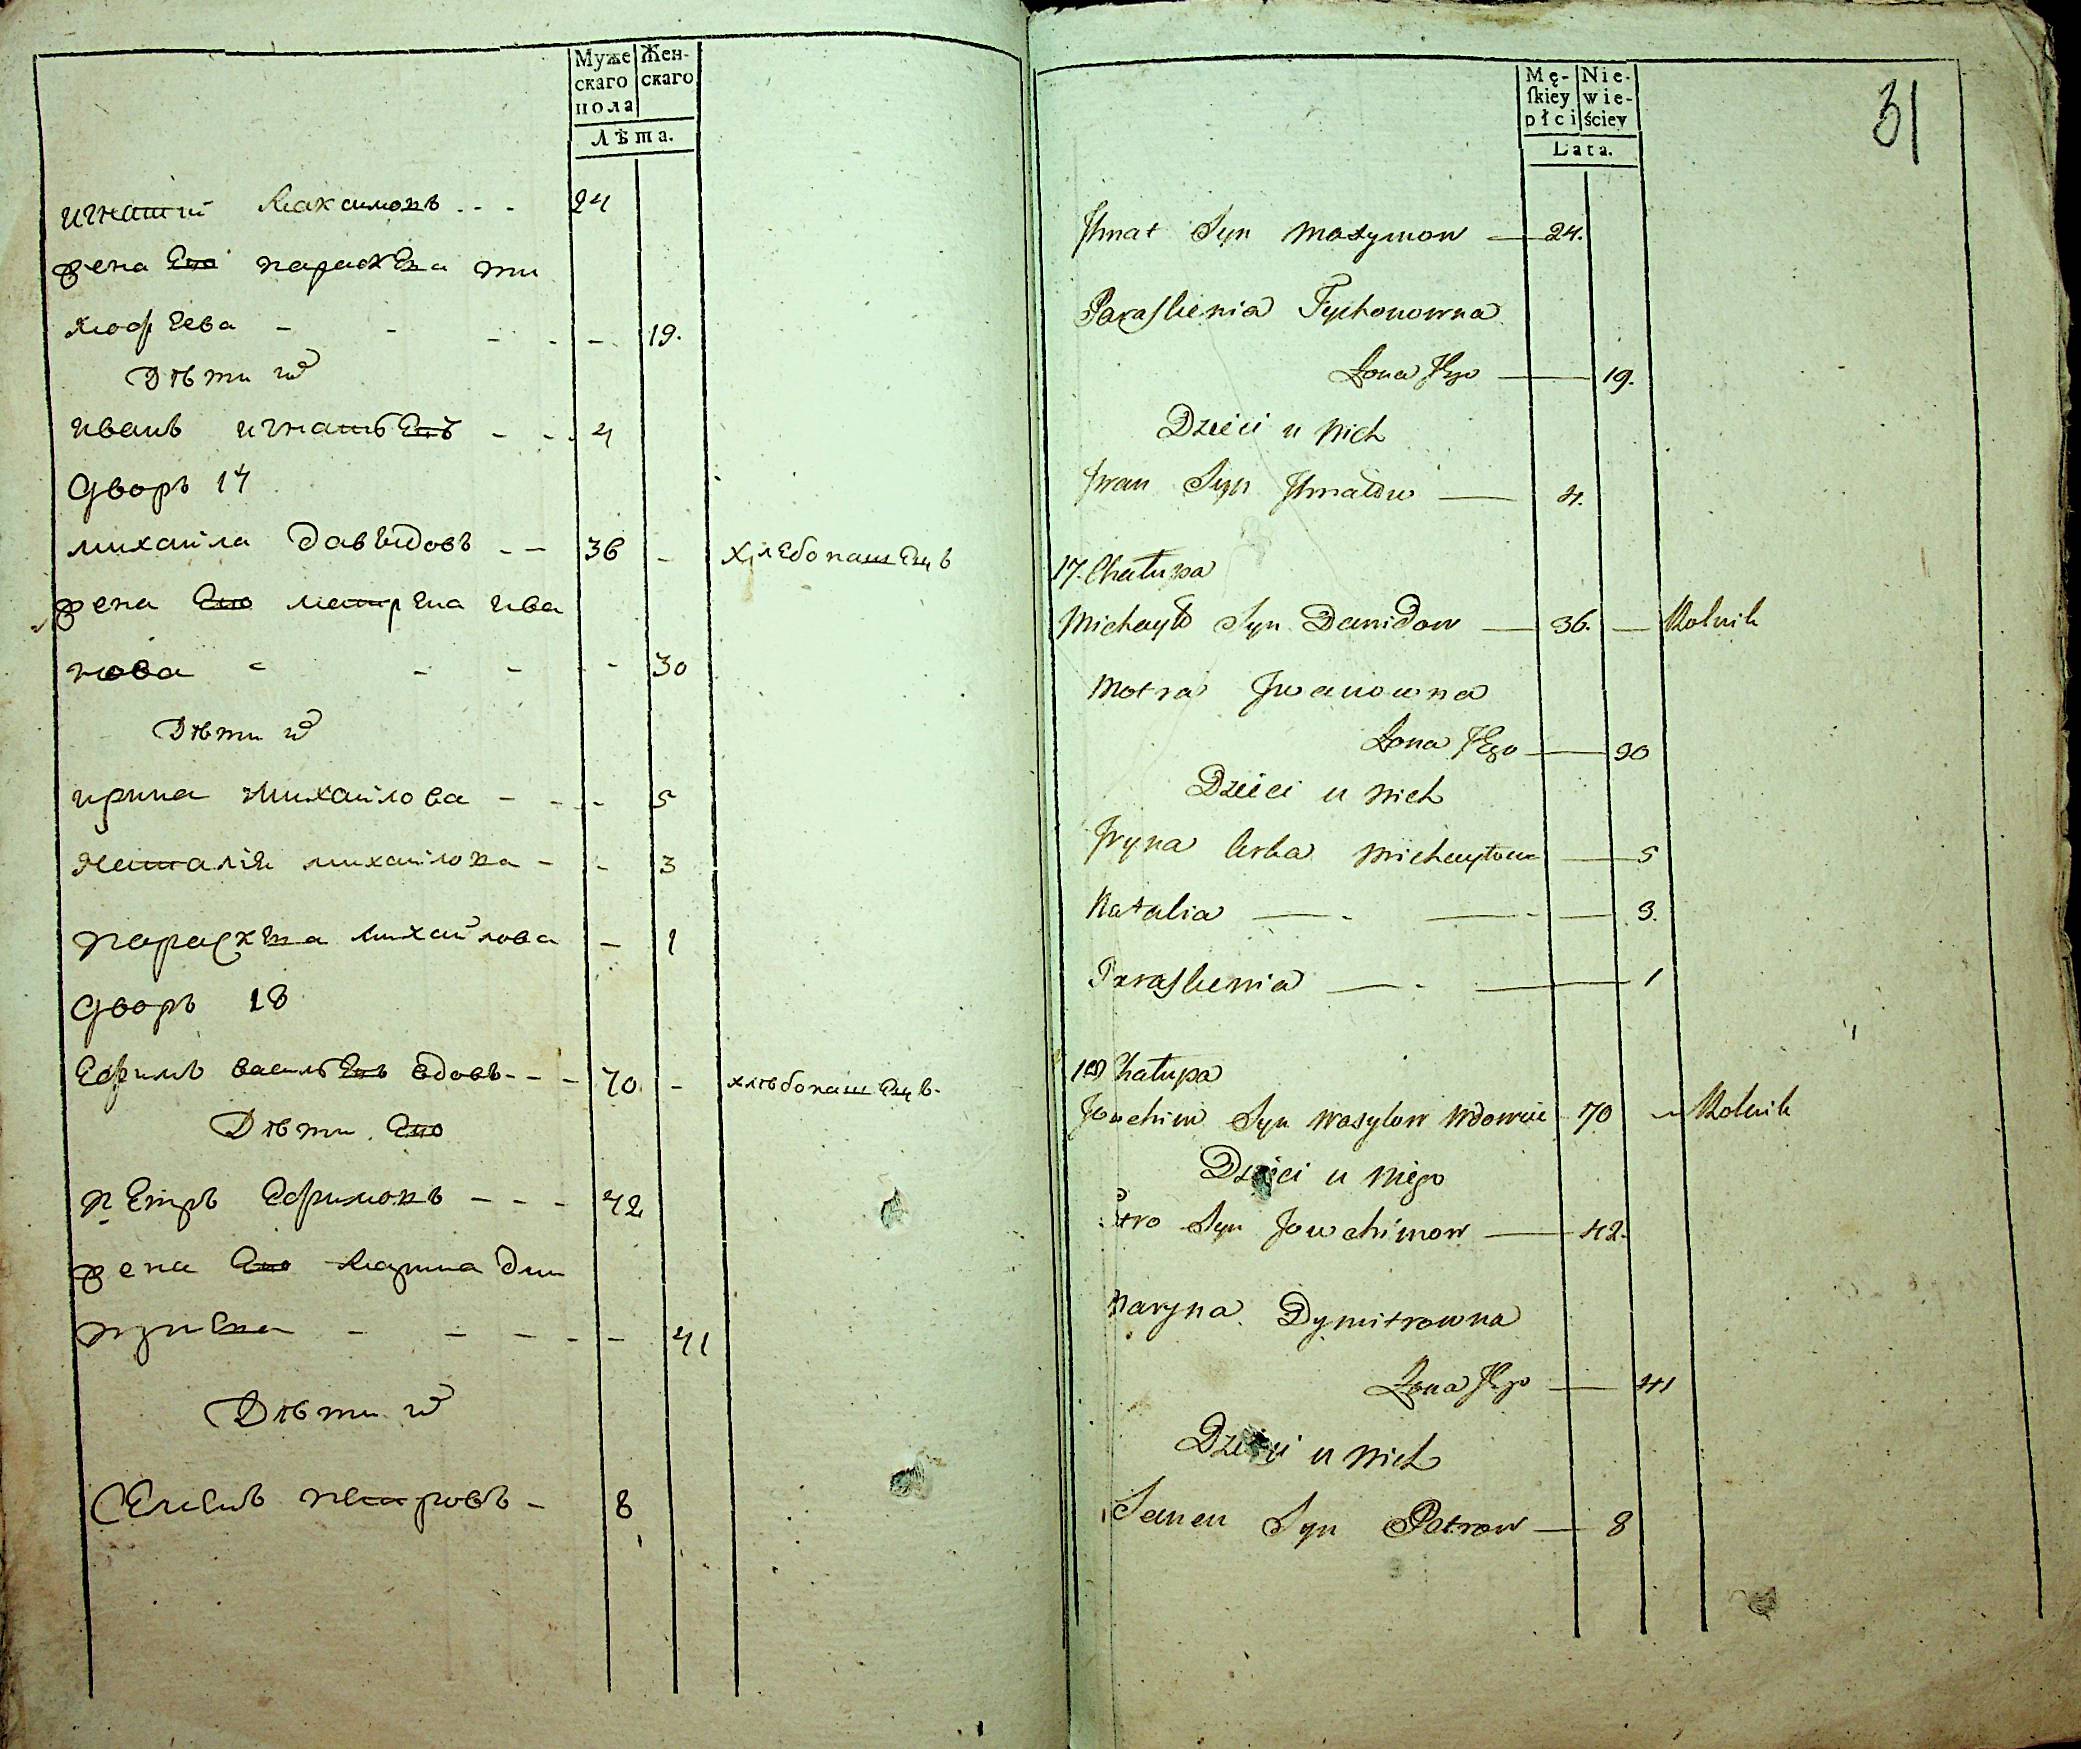 Муже
скаго
пола
Жен-
скаго
Лѣта.
игнатий Максимовъ - - - 24
жена Его параскева ти
мофеева - - - - - 19.
Дѣти их
иванъ игнатьевъ - - - 4
Дворъ 17
михайла давыдовъ - - 36 - хлебопашецъ
жена Его матрена ива
нова - - - - - 30
Дѣти их
ирина михайлова - - - 5
наталiя михайлова - - 3
параскева михайлова - 1
Дворъ 18
Ефимъ васильевъ вдовъ - - - 70. - хлѣбопашецъ -
Дѣти Его
петръ Ефимовъ - - - 42
жена Его марина дми
триева - - - - - - 41
Дѣти их
Семенъ петровъ - 8
Mę-
ſkiey
płci
Nie-
wie-
ściey
Lata.
31
Ihnat Syn Maxymow — 24.
Paraskewia Tychonowna
Zona Jego — 19.
Dzieci u Nich
Iwan Syn Ihnatow — 4.
17. Chałupa
Michayło Syn Dawidow — 36. — Rolnik
Motra Iwanowna
Zona Jego — 30
Dzieci u Nich
Iryna Corka Michayłowa — 5
Natalia — - — - — 3.
Paraskewia — - — 1
18 Chałupa
Jowchim Syn Wasylow Wdowiec 70 — Rolnik
Dzieci u Niego
Petro Syn Jowchimow — 42.
Maryna Dymitrowna
Zona Jego — 41
Dzieci u Nich
Semen Syn Petrow — 8